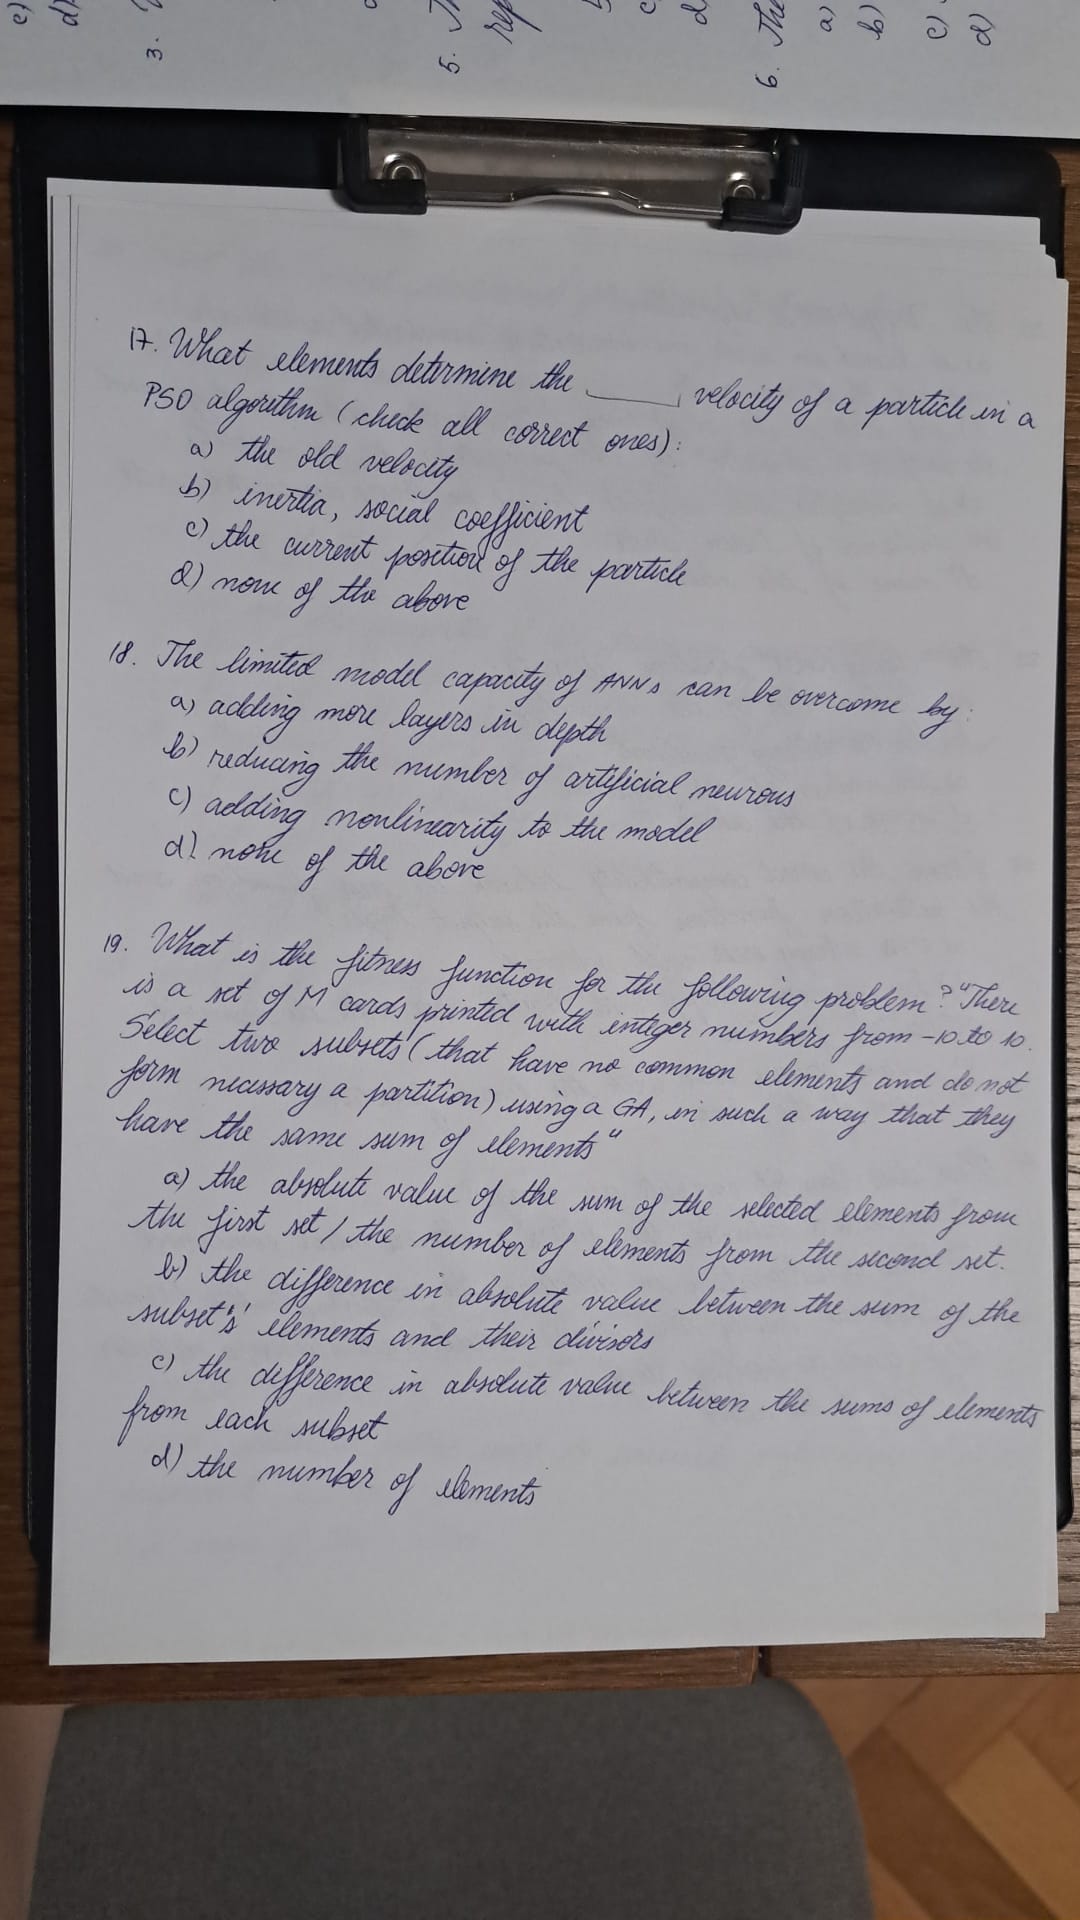 c)
d)
3.
5. Th
rep
c
d
6. The
a)
b)
c)
d)
17. What elements determine the ____ velocity of a particle in a
PSO algorithm (check all correct ones):
a) the old velocity
b) inertia, social coefficient
c) the current position of the particle
d) none of the above
18. The limited model capacity of ANNs can be overcome by:
a) adding more layers in depth
b) reducing the number of artificial neurons
c) adding nonlinearity to the model
d) none of the above
19. What is the fitness function for the following problem? "There
is a set of M cards printed with integer numbers from -10 to 10.
Select two subsets (that have no common elements and do not
form necessary a partition) using a GA, in such a way that they
have the same sum of elements"
a) the absolute value of the sum of the selected elements from
the first set / the number of elements from the second set.
b) the difference in absolute value between the sum of the
subset's' elements and their divisors
c) the difference in absolute value between the sums of elements
from each subset
d) the number of elements